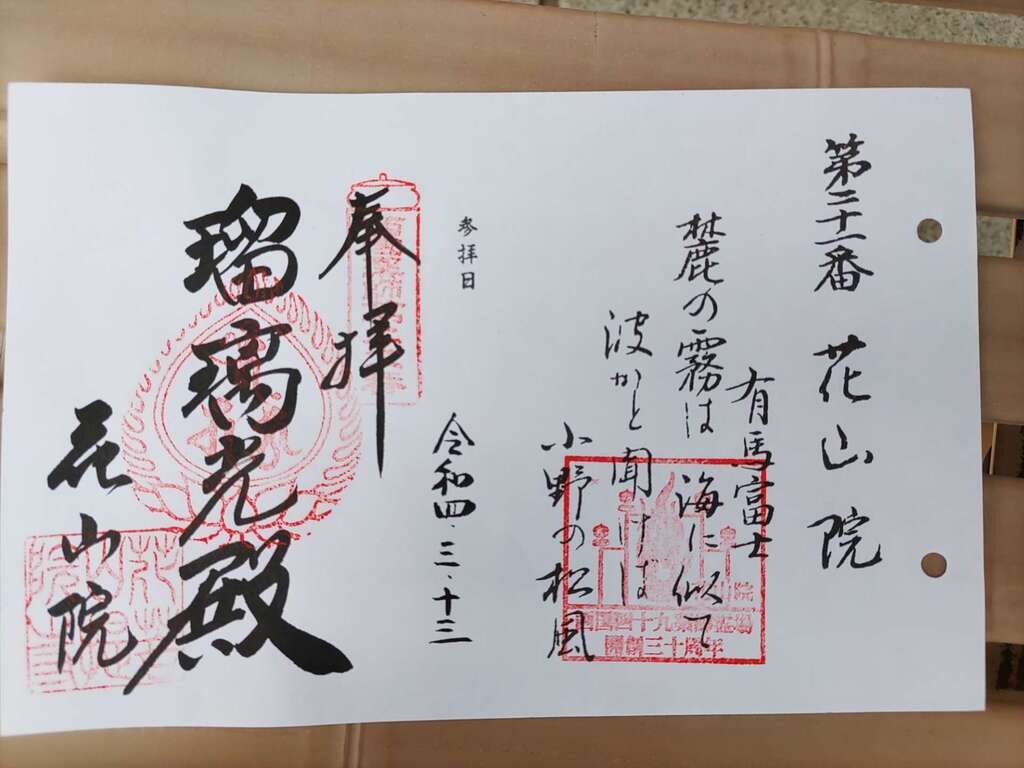 第二十一番 花山院
有馬富士
麓の霧は 海に似て
波かと聞けば
小野の松風
参拝日
令和四.三.十三
奉拝
瑠璃光殿
花山院
西国四十九薬師霊場
開創三十周年